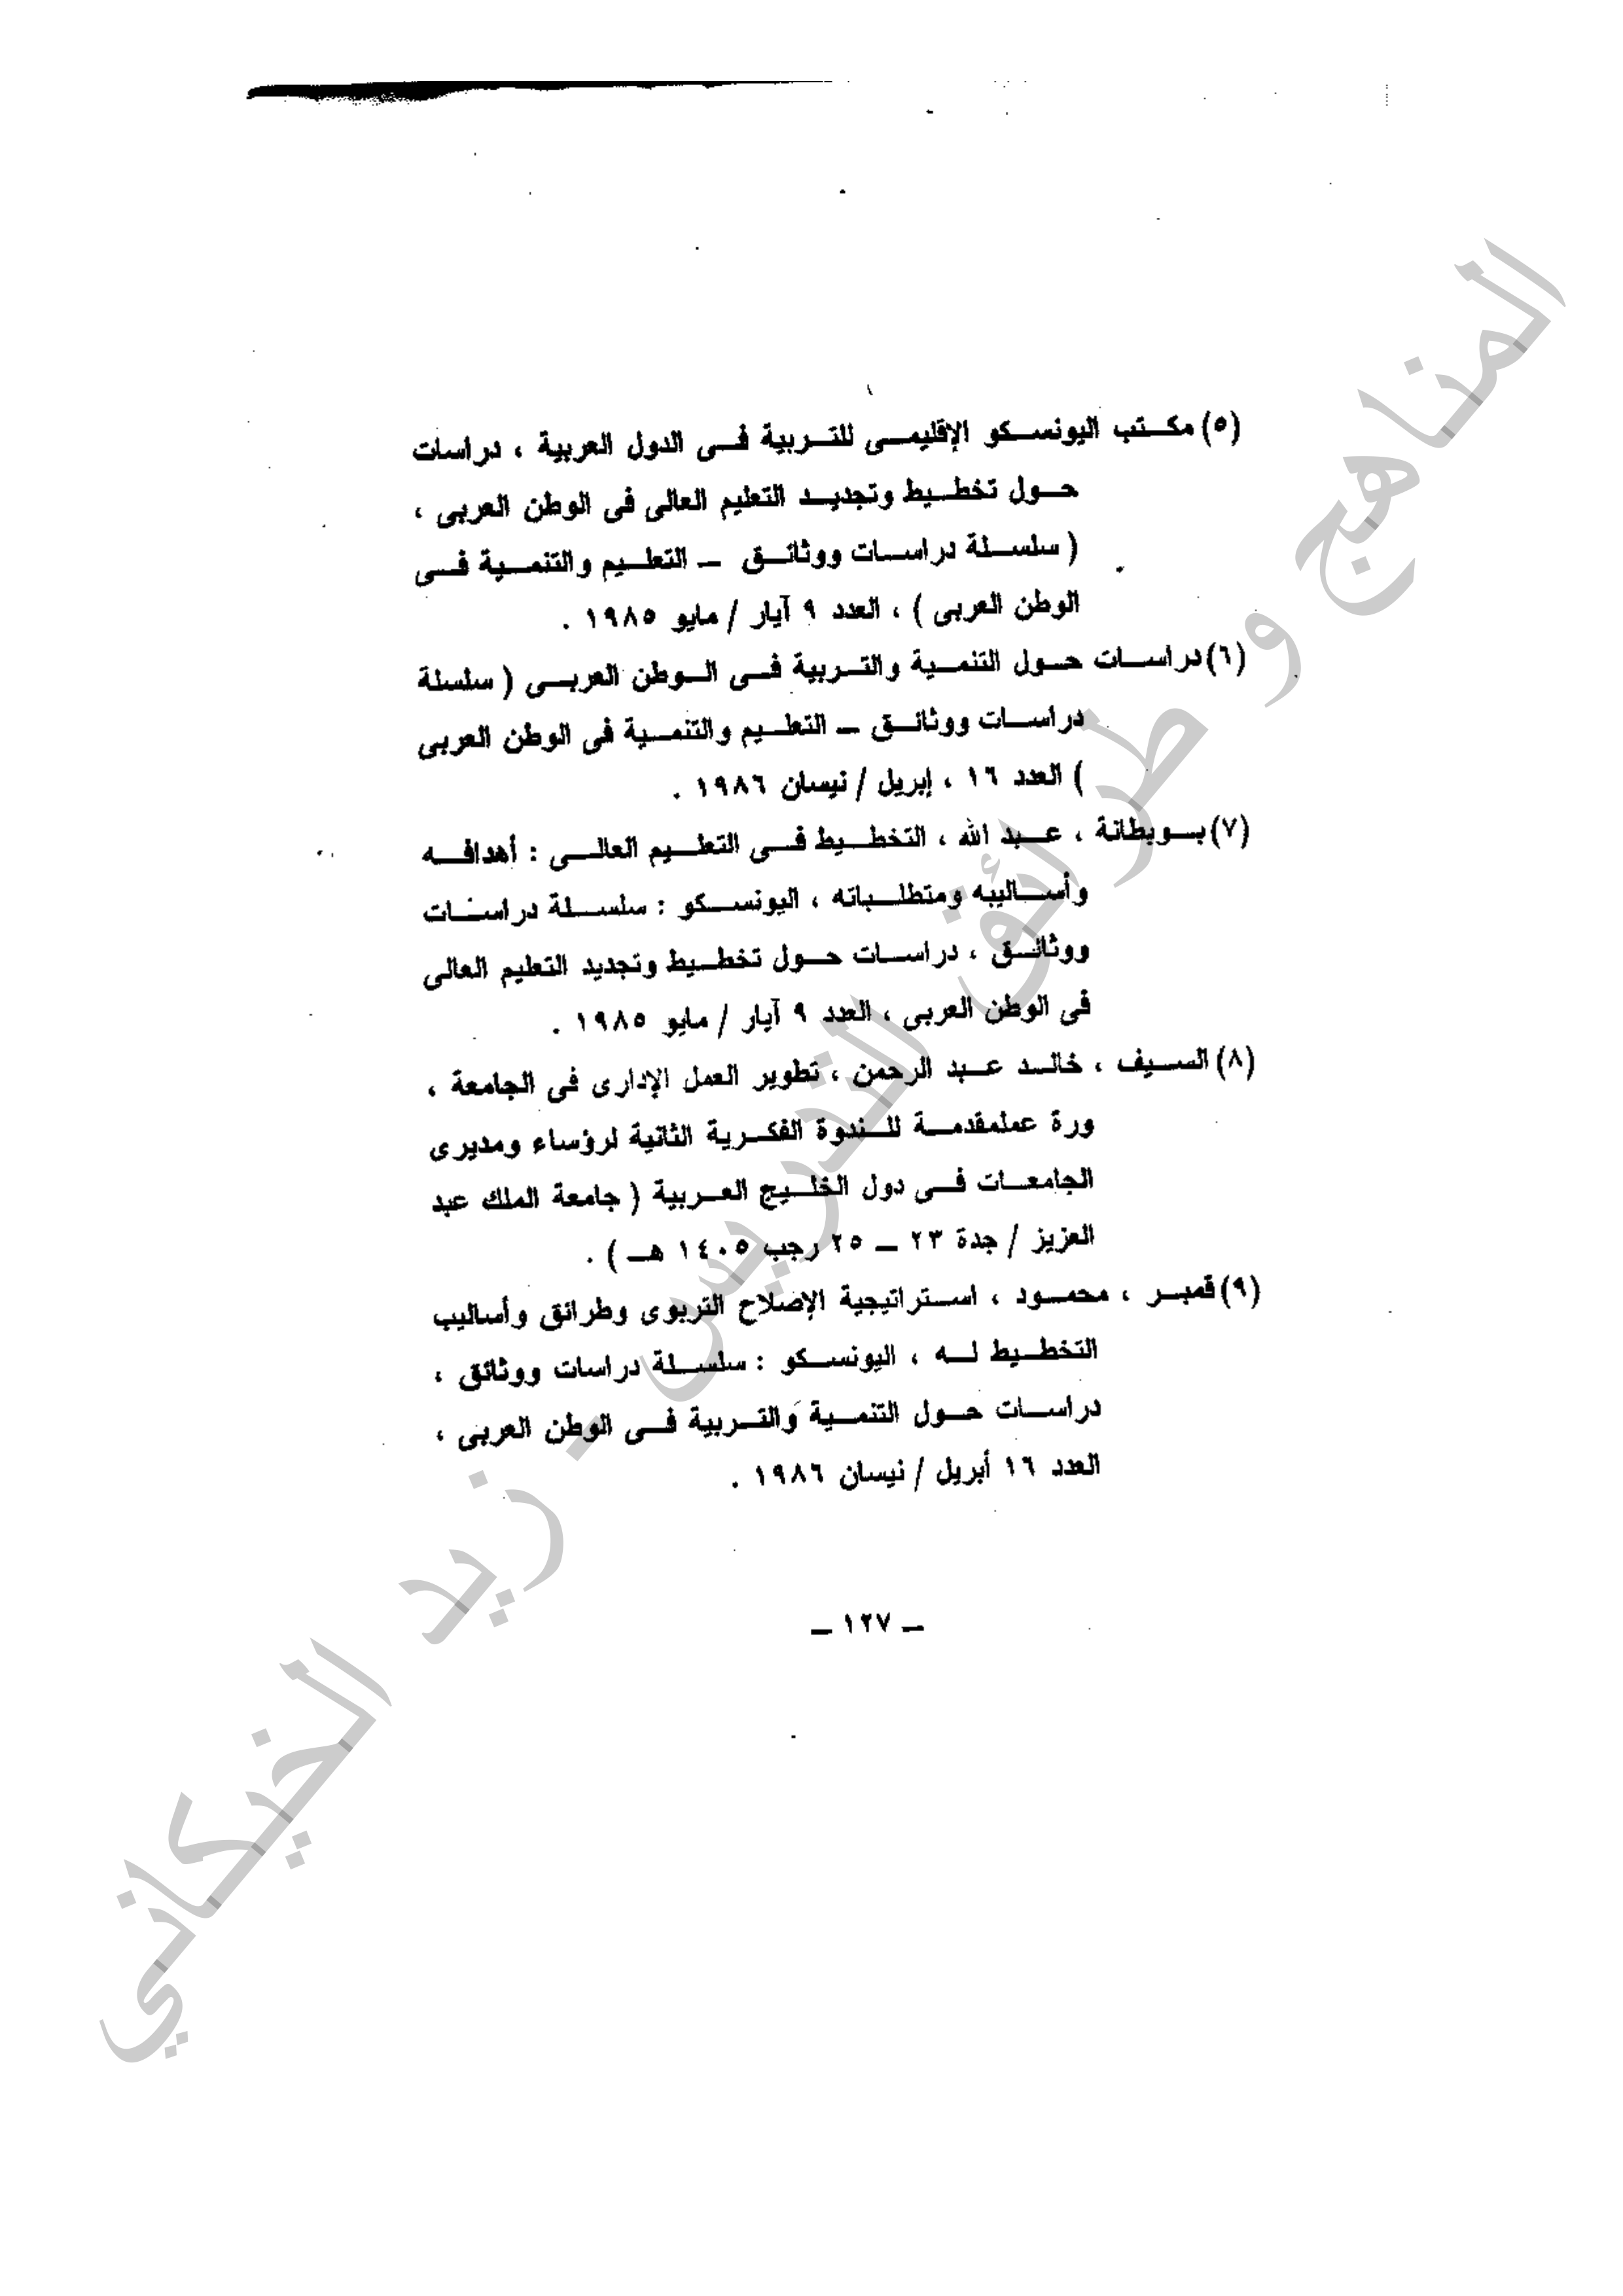 (٥) مكتب اليونسكو الإقليمى للتربية فى الدول العربية ، دراسات
حول تخطيط وتجديد التعليم العالى فى الوطن العربى ،
( سلسلة دراسات ووثائق ــ التعليم والتنمية فى
الوطن العربى ) ، العدد ٩ آيار / مايو ١٩٨٥ .
(٦) دراسات حول التنمية والتربية فى الوطن العربى ( سلسلة
دراسات ووثائق ــ التعليم والتنمية فى الوطن العربى
) العدد ١٦ ، إبريل / نيسان ١٩٨٦ .
(٧) بوبطانة ، عبد الله ، التخطيط فى التعليم العالى : أهدافه
وأساليبه ومتطلباته ، اليونسكو : سلسلة دراسات
ووثائق ، دراسات حول تخطيط وتجديد التعليم العالى
فى الوطن العربى ، العدد ٩ آيار / مايو ١٩٨٥ .
(٨) السيف ، خالد عبد الرحمن ، تطوير العمل الإدارى فى الجامعة ،
ورة عملمقدمة للندوة الفكرية الثانية لرؤساء ومديرى
الجامعات فى دول الخليج العربية ( جامعة الملك عبد
العزيز / جدة ٢٣ ــ ٢٥ رجب ١٤٠٥ هـ ) .
(٩) قمبر ، محمود ، استراتيجية الإصلاح التربوى وطرائق وأساليب
التخطيط له ، اليونسكو : سلسلة دراسات ووثائق ،
دراسات حول التنمية والتربية فى الوطن العربى ،
العدد ١٦ أبريل / نيسان ١٩٨٦ .
ــ ١٢٧ ــ
المناهج و طرائق التدريس - زيد الخيكاني